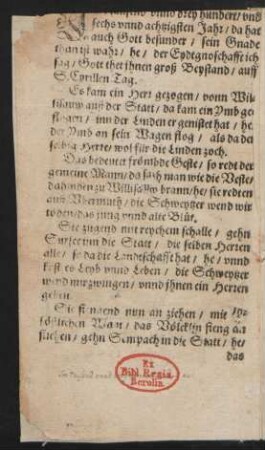 tausend vnnd drey hundert / vnd
sechs vnnd achtzigsten Jahr / da hat
auch Gott besunder / sein Gnade
than ist wahr / he / der Eydtgnoschafft ich
sag / Gott thet jhnen groß Beystand / auff
S. Cyrillen Tag.
Es kam ein Herr gezogen / vonn Wil-
lisaw auß der Statt / da kam ein Ymb ge-
flogen / inn der Linden er genistet hat / he
der Ymb an sein Wagen flog / als da der
selbig Herre / wol für die Linden zoch.
Das bedeutet frömbde Geste / so redt der
gemeine Mann / da sach man wie die Veste /
dahinden zu Willisaw brann / he / sie redten
auß Vbermuth / die Schweytzer wend wir
tödten / das jung vnnd alte Blüt.
Sie zugend mit reychem schalle / gehn
Sursee inn die Statt / die selben Herren
alle / so da die Landtschafft hat / he / vnnd
kost es Leyb vnnd Leben / die Schweytzer
wend wir zwingen / vnnd jhnen ein Herren
geben.
Sie fiengend nun an ziehen / mit
köstlichen Waat / das Völcklin fieng an
fliehen / gehn Sempach in die Statt / he /
das
Ex
Bibl. Regia
Berolin.